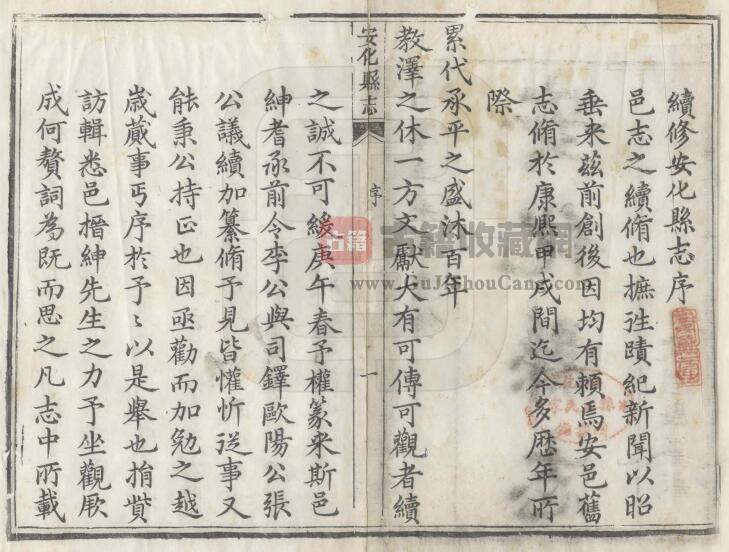 續修安化縣志序
邑志之續脩也摭往蹟紀新聞以昭
垂来茲前創後因均有賴焉安邑舊
志脩於康熙甲戌間迄今多歴年所
際
累代承平之盛沐百年
教澤之休一方文獻大有可傳可觀者續
安化縣志
序
一
之誠不可緩庚午春予權篆来斯邑
紳耆承前令李公與司鐸歐陽公張
公議續加纂脩予見皆懽忻從事又
能秉公持正也因亟勸而加勉之越
歲蕆事丐序於予予以是舉也捐貲
訪輯悉邑搢紳先生之力予坐觀厥
成何贅詞為既而思之凡志中所載
古籍
古籍收藏網
www.GuJiShouCang.com